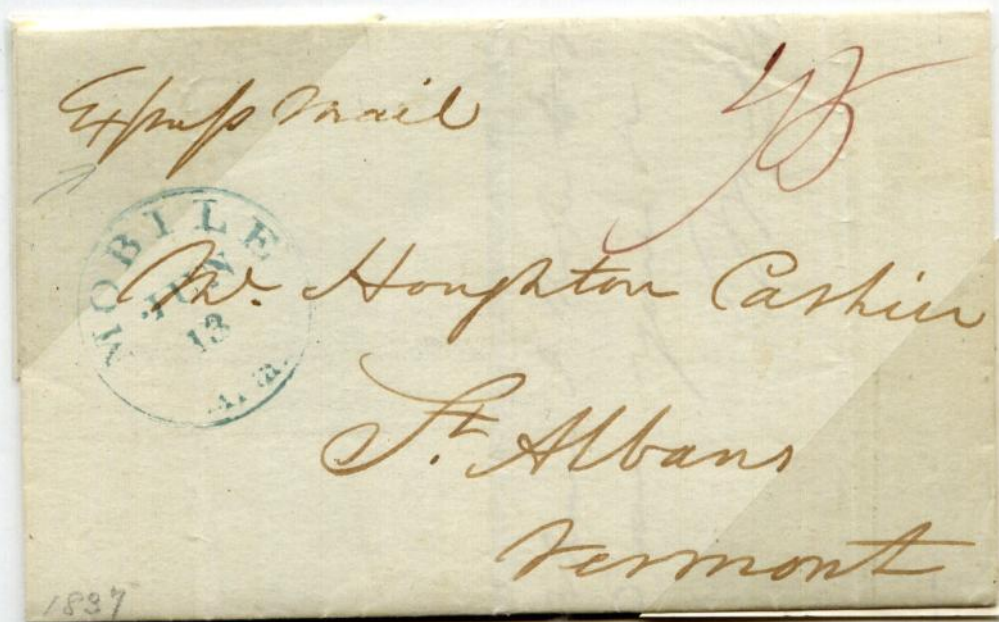 Express Mail
75
MOBILE
JUN
13
Ala.
Mr. Houghton Cashier
St. Albans
Vermont
1837